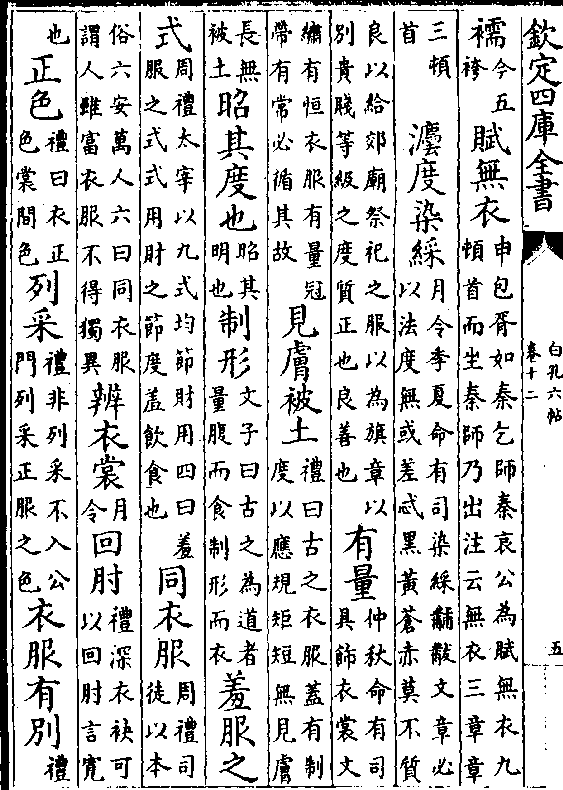 欽定四庫全書
白孔六帖
卷十二
五
襦今五袴賦無衣申包胥如秦乞師秦哀公為賦無衣九頓首而坐秦師乃出注云無衣三章章
三頓首灋度染綵月令季夏命有司染綵黼黻文章必以法度無或差忒黑黃蒼赤莫不質
良以給郊廟祭祀之服以為旗章以別貴賤等級之度質正也良善也有量仲秋命有司具飾衣裳文
繡有恒衣服有量冠帶有常必循其故見膚被土禮曰古之衣服蓋有制度以應規矩短無見膚
長無被土昭其度也昭其明也制形文子曰古之為道者量腹而食制形而衣羞服之
式周禮太宰以九式均節財用四曰羞服之式式用財之節度羞飲食也同衣服周禮司徒以本
俗六安萬人六曰同衣服謂人雖富衣服不得獨異辨衣裳月令回肘禮深衣袂可以回肘言寬
也正色禮曰衣正色裳間色列采禮非列采不入公門列采正服之色衣服有別禮